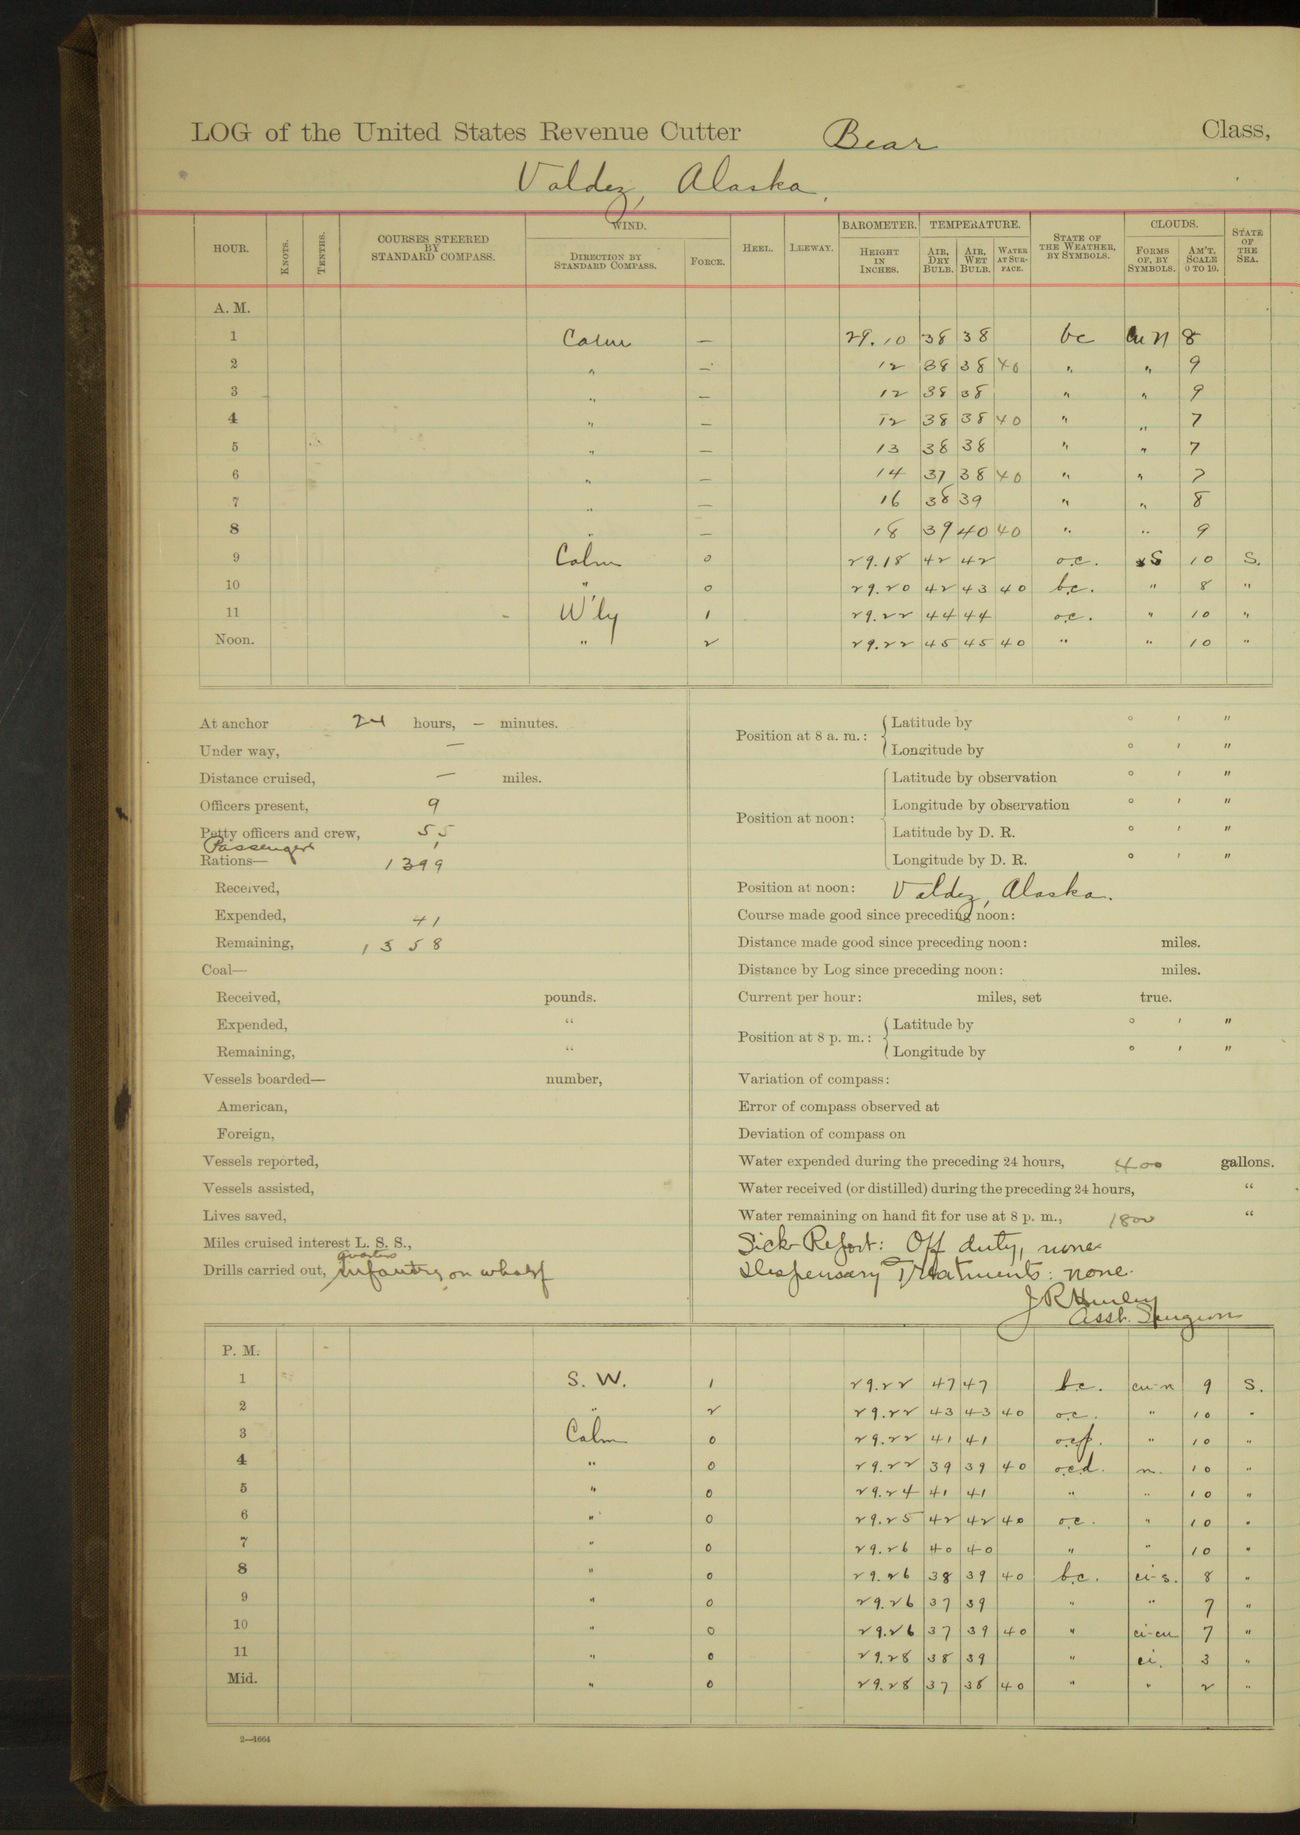 LOG of the United States Revenue Cutter Bear Class,
Valdez, Alaska.
HOUR. KNOTS. TENTHS. COURSES STEERED BY STANDARD COMPASS. WIND. DIRECTION BY STANDARD COMPASS. FORCE. HEEL. LEEWAY. BAROMETER. HEIGHT IN INCHES. TEMPERATURE. AIR, DRY BULB. AIR, WET BULB. WATER AT SURFACE. STATE OF THE WEATHER, BY SYMBOLS. CLOUDS. FORMS OF, BY SYMBOLS. AM'T, SCALE 0 TO 10. STATE OF THE SEA.
A. M.
1 Calm — 29.10 38 38 bc cu n 8
2 " — 12 38 38 40 " " 9
3 " — 12 38 38 " " 9
4 " — 12 38 38 40 " " 7
5 " — 13 38 38 " " 7
6 " — 14 37 38 40 " " 7
7 " — 16 38 39 " " 8
8 " — 18 39 40 40 " " 9
9 Calm 0 29.18 42 42 o.c. S 10 S.
10 " 0 29.20 42 43 40 b.c. " 8 "
11 W'ly 1 29.22 44 44 o.c. " 10 "
Noon. " 2 29.22 45 45 40 " " 10 "
At anchor 24 hours, — minutes.
Under way, —
Distance cruised, — miles.
Officers present, 9
Petty officers and crew, 55
Passengers 1
Rations— 1399
Received,
Expended, 41
Remaining, 1358
Coal—
Received, pounds.
Expended, "
Remaining, "
Vessels boarded— number,
American,
Foreign,
Vessels reported,
Vessels assisted,
Lives saved,
Miles cruised interest L. S. S.,
quarters
Drills carried out, Infantry on wharf
Position at 8 a. m.: Latitude by ° ' "
Longitude by ° ' "
Position at noon: Latitude by observation ° ' "
Longitude by observation ° ' "
Latitude by D. R. ° ' "
Longitude by D. R. ° ' "
Position at noon: Valdez, Alaska.
Course made good since preceding noon:
Distance made good since preceding noon: miles.
Distance by Log since preceding noon: miles.
Current per hour: miles, set true.
Position at 8 p. m.: Latitude by ° ' "
Longitude by ° ' "
Variation of compass:
Error of compass observed at
Deviation of compass on
Water expended during the preceding 24 hours, 400 gallons.
Water received (or distilled) during the preceding 24 hours, "
Water remaining on hand fit for use at 8 p. m., 1800 "
Sick Report: Off duty, none.
Dispensary Treatments: none.
J R Hurley
Asst. Surgeon
P. M.
1 S. W. 1 29.22 47 47 b.c. cu-n 9 S.
2 " 2 29.22 43 43 40 o.c. " 10 "
3 Calm 0 29.22 41 41 o.c.p. " 10 "
4 " 0 29.22 39 39 40 o.c.d. n. 10 "
5 " 0 29.24 41 41 " " 10 "
6 " 0 29.25 42 42 40 o.c. " 10 "
7 " 0 29.26 40 40 " " 10 "
8 " 0 29.26 38 39 40 b.c. ci-s. 8 "
9 " 0 29.26 37 39 " " 7 "
10 " 0 29.26 37 39 40 " ci-cu 7 "
11 " 0 29.28 38 39 " ci. 3 "
Mid. " 0 29.28 37 38 40 " " 2 "
2—1664